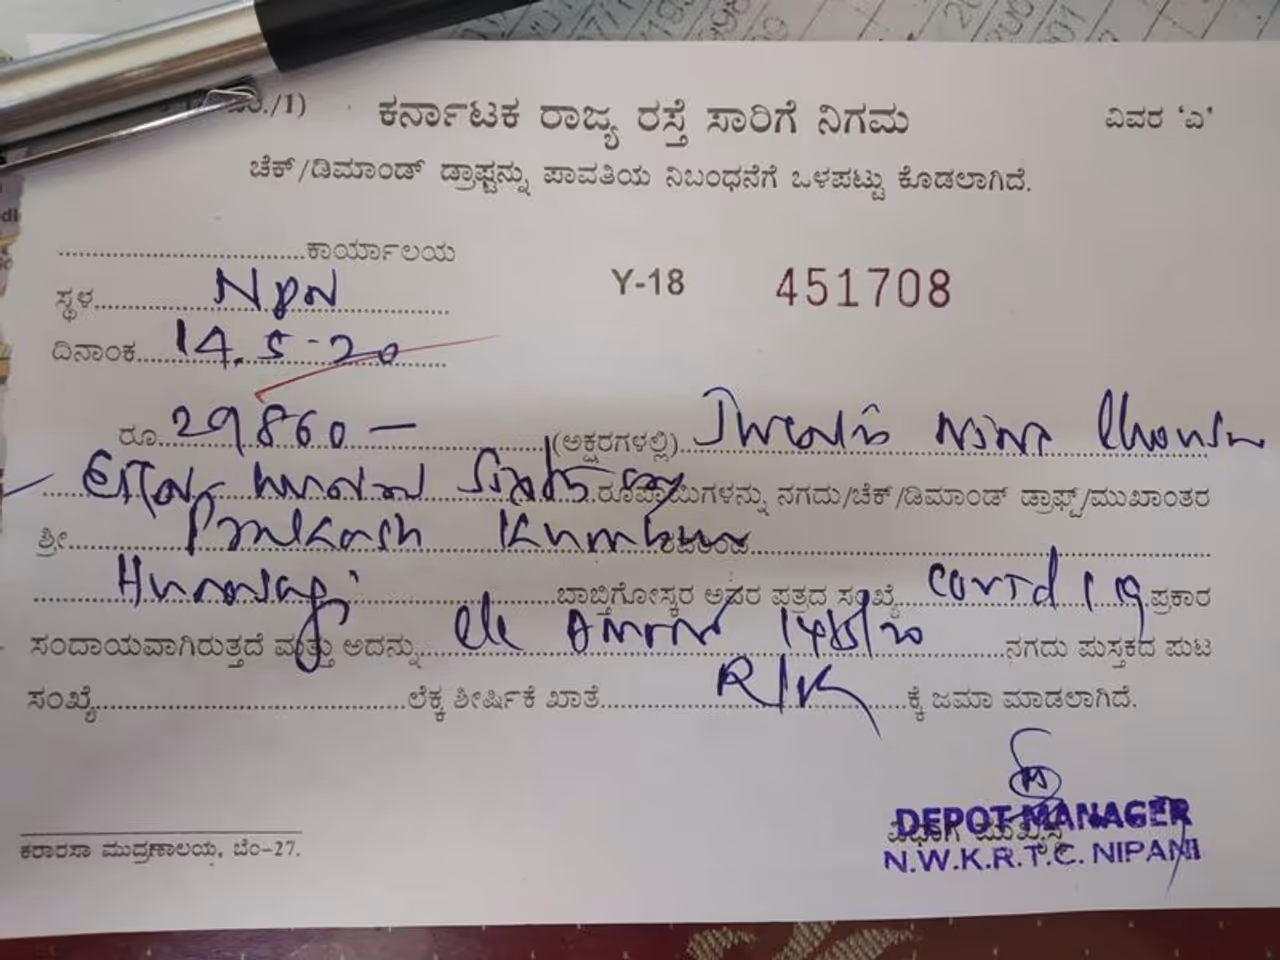 /1) ಕರ್ನಾಟಕ ರಾಜ್ಯ ರಸ್ತೆ ಸಾರಿಗೆ ನಿಗಮ ವಿವರ ‘ಎ’
ಚೆಕ್/ಡಿಮಾಂಡ್ ಡ್ರಾಫ್ಟನ್ನು ಪಾವತಿಯ ನಿಬಂಧನೆಗೆ ಒಳಪಟ್ಟು ಕೊಡಲಾಗಿದೆ.
ಕಾರ್ಯಾಲಯ
ಸ್ಥಳ NPN Y-18 451708
ದಿನಾಂಕ 14.5-20
ರೂ 29860— (ಅಕ್ಷರಗಳಲ್ಲಿ) Nine
Sixty ರೂಪಾಯಿಗಳನ್ನು ನಗದು/ಚೆಕ್/ಡಿಮಾಂಡ್ ಡ್ರಾಫ್ಟ್/ಮುಖಾಂತರ
ಶ್ರೀ Prakash Kumbar
ಬಾಬ್ತಿಗೋಸ್ಕರ ಅವರ ಪತ್ರದ ಸಂಖ್ಯೆ Covid 19 ಪ್ರಕಾರ
ಸಂದಾಯವಾಗಿರುತ್ತದೆ ಮತ್ತು ಅದನ್ನು 14/5/20 ನಗದು ಪುಸ್ತಕದ ಪುಟ
ಸಂಖ್ಯೆ ಲೆಕ್ಕ ಶೀರ್ಷಿಕೆ ಖಾತೆ ಕ್ಕೆ ಜಮಾ ಮಾಡಲಾಗಿದೆ.
DEPOT MANAGER
N.W.K.R.T.C. NIPANI
ಕರಾರಸಾ ಮುದ್ರಣಾಲಯ, ಬೆಂ-27.